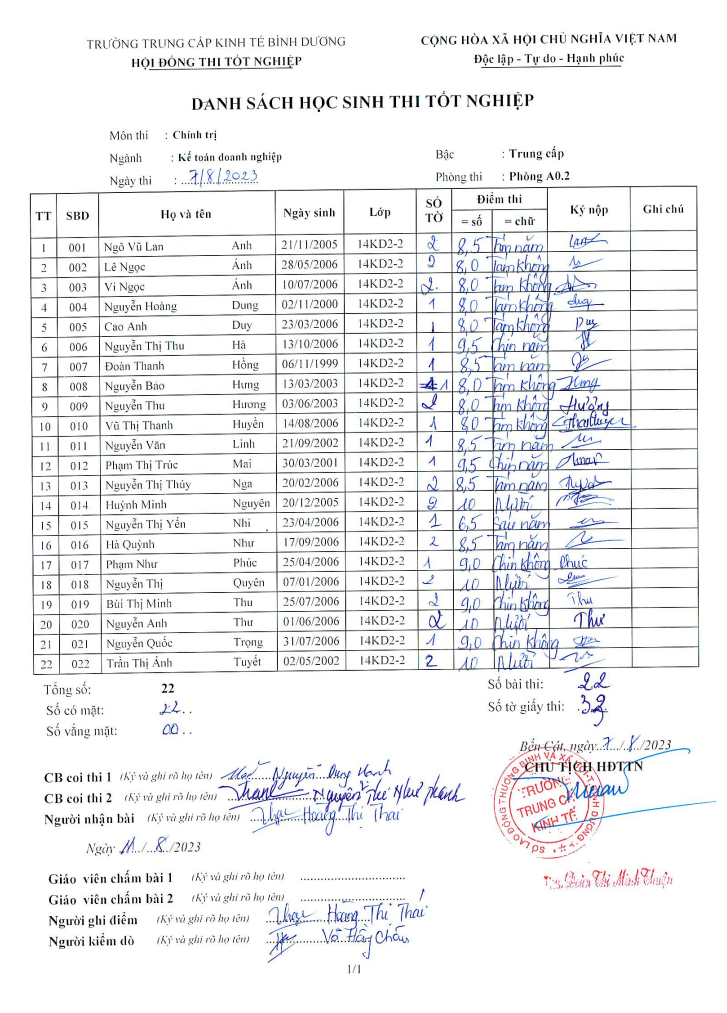 TRƯỜNG TRUNG CẤP KINH TẾ BÌNH DƯƠNG
HỘI ĐỒNG THI TỐT NGHIỆP
CỘNG HÒA XÃ HỘI CHỦ NGHĨA VIỆT NAM
Độc lập - Tự do - Hạnh phúc
DANH SÁCH HỌC SINH THI TỐT NGHIỆP
Môn thi : Chính trị
Ngành : Kế toán doanh nghiệp
Bậc : Trung cấp
Ngày thi : 7/8/2023
Phòng thi : Phòng A0.2
TT SBD Họ và tên Ngày sinh Lớp SỐ TỜ Điểm thi = số = chữ Ký nộp Ghi chú
1 001 Ngô Vũ Lan Anh 21/11/2005 14KD2-2 2 8,5 Tám năm
2 002 Lê Ngọc Ánh 28/05/2006 14KD2-2 2 8,0 Tám không
3 003 Vi Ngọc Ánh 10/07/2006 14KD2-2 2 8,0 Tám không
4 004 Nguyễn Hoàng Dung 02/11/2000 14KD2-2 1 8,0 Tám không
5 005 Cao Anh Duy 23/03/2006 14KD2-2 1 8,0 Tám không Duy
6 006 Nguyễn Thị Thu Hà 13/10/2006 14KD2-2 1 9,5 Chín năm
7 007 Đoàn Thanh Hồng 06/11/1999 14KD2-2 1 8,5 Tám năm
8 008 Nguyễn Bảo Hưng 13/03/2003 14KD2-2 1 8,0 Tám không Hưng
9 009 Nguyễn Thu Hương 03/06/2003 14KD2-2 2 8,0 Tám không Hương
10 010 Vũ Thị Thanh Huyền 14/08/2006 14KD2-2 1 8,0 Tám không
11 011 Nguyễn Văn Linh 21/09/2002 14KD2-2 1 8,5 Tám năm
12 012 Phạm Thị Trúc Mai 30/03/2001 14KD2-2 1 9,5 Chín năm
13 013 Nguyễn Thị Thúy Nga 20/02/2006 14KD2-2 2 8,5 Tám năm
14 014 Huỳnh Minh Nguyên 20/12/2005 14KD2-2 2 10 Mười
15 015 Nguyễn Thị Yến Nhi 23/04/2006 14KD2-2 1 6,5 Sáu năm
16 016 Hà Quỳnh Như 17/09/2006 14KD2-2 2 8,5 Tám năm
17 017 Phạm Như Phúc 25/04/2006 14KD2-2 1 9,0 Chín không Phúc
18 018 Nguyễn Thị Quyên 07/01/2006 14KD2-2 2 10 Mười
19 019 Bùi Thị Minh Thu 25/07/2006 14KD2-2 2 9,0 Chín không Thu
20 020 Nguyễn Anh Thư 01/06/2006 14KD2-2 2 10 Mười Thư
21 021 Nguyễn Quốc Trọng 31/07/2006 14KD2-2 1 9,0 Chín không
22 022 Trần Thị Ánh Tuyết 02/05/2002 14KD2-2 2 10 Mười
Tổng số: 22
Số bài thi: 22
Số có mặt: 22
Số tờ giấy thi:
Số vắng mặt: 00
Bến Cát, ngày 7/8/2023
CHỦ TỊCH HĐTTN
CB coi thi 1 (Ký và ghi rõ họ tên) Nguyễn
CB coi thi 2 (Ký và ghi rõ họ tên) Nguyễn Thị Như Thanh
Người nhận bài (Ký và ghi rõ họ tên) Hoàng Thị Thai
TRƯỜNG TRUNG CẤP KINH TẾ
Ngày 11/8/2023
Ths. Đoàn Thị Minh Thuận
Giáo viên chấm bài 1 (Ký và ghi rõ họ tên)
Giáo viên chấm bài 2 (Ký và ghi rõ họ tên)
Người ghi điểm (Ký và ghi rõ họ tên) Hoàng Thị Thai
Người kiểm dò (Ký và ghi rõ họ tên) Võ Hồng Châu
1/1